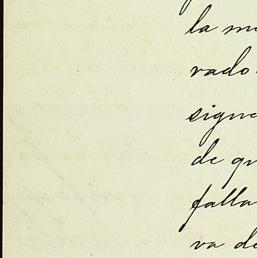 la mo
vado
signe
de qu
falla
va de